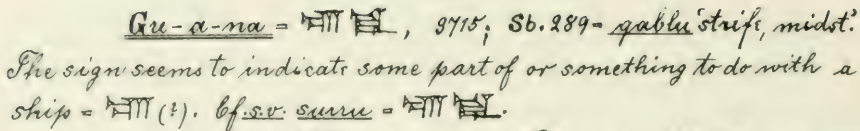 Gu-a-na = , 9715; Sb. 289 = qablu 'strife, midst.'
The sign seems to indicate some part of or something to do with a
ship = (?). Cf. s.v. surru =